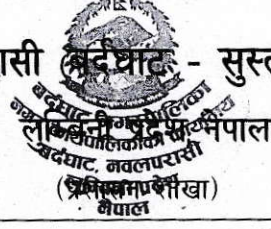 ासी (बर्दघाट - सुस्त
लुम्बिनी प्रदेश नेपाल
शाखा)
बर्दघाट नगरपालिका
नगर कार्यपालिकाको कार्यालय
बर्दघाट, नवलपरासी
नेपाल